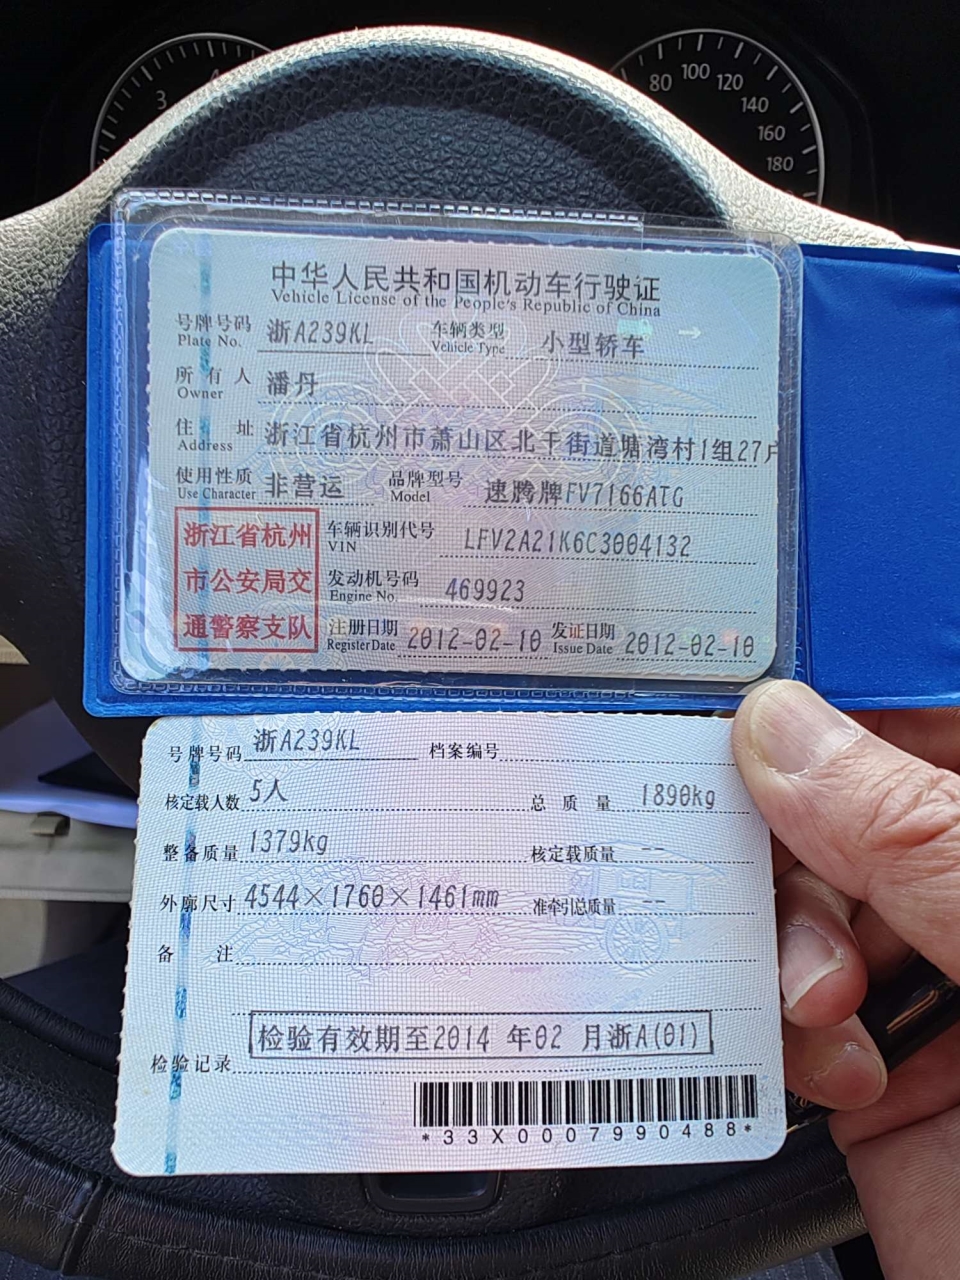 3
80 100 120
140
160
180
中华人民共和国机动车行驶证
Vehicle License of the People's Republic of China
号牌号码 浙A239KL 车辆类型 小型轿车
Plate No. Vehicle Type
所有人 潘丹
Owner
住址 浙江省杭州市萧山区北干街道塘湾村1组27户
Address
使用性质 非营运 品牌型号 速腾牌FV7166ATG
Use Character Model
浙江省杭州
市公安局交
通警察支队
车辆识别代号 LFV2A21K6C3004132
VIN
发动机号码 469923
Engine No.
注册日期 2012-02-10 发证日期 2012-02-10
Register Date Issue Date
号牌号码 浙A239KL 档案编号
核定载人数 5人 总质量 1890kg
整备质量 1379kg 核定载质量 --
外廓尺寸 4544×1760×1461mm 准牵引总质量 --
备注
检验有效期至2014 年02 月浙A(01)
检验记录
*33X0007990488*